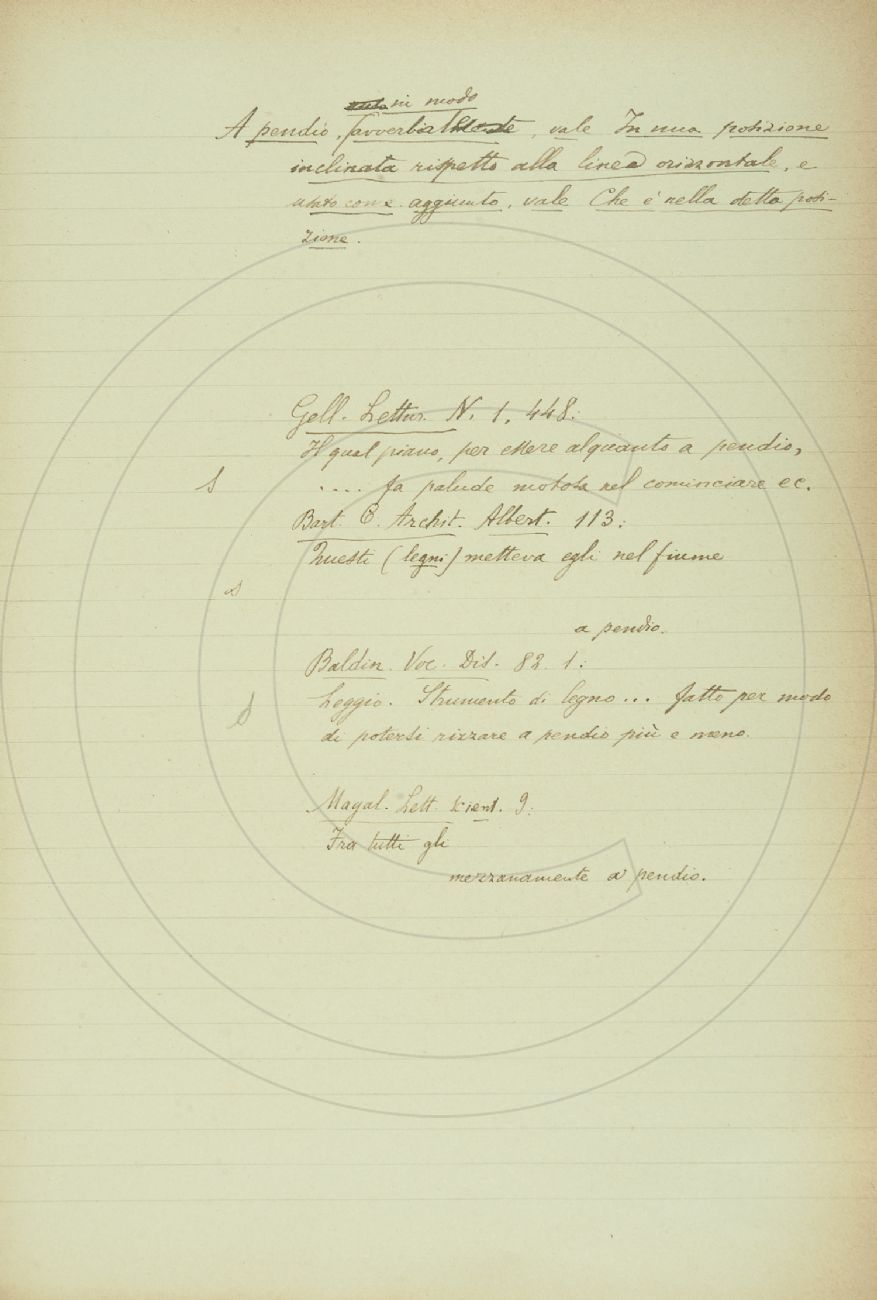 in modo
A pendio, avverbiale, vale In una posizione
inclinata rispetto alla linea orizzontale, e
usato come aggiunto, vale Che è nella detta posi-
zione.
Gell. Lettur. N. 1, 448:
Il qual piano, per essere alquanto a pendio,
S .... fa palude motosa nel cominciare ec.
Bart. C. Archit. Albert. 113:
Questi (legni) metteva egli nel fiume
s
a pendio.
Baldin. Voc. Dis. 82. 1:
Leggio. Strumento di legno... fatto per modo
di potersi rizzare a pendio più e meno.
Magal. Lett. scient. 9:
Fra tutti gli
mezzanamente a pendio.